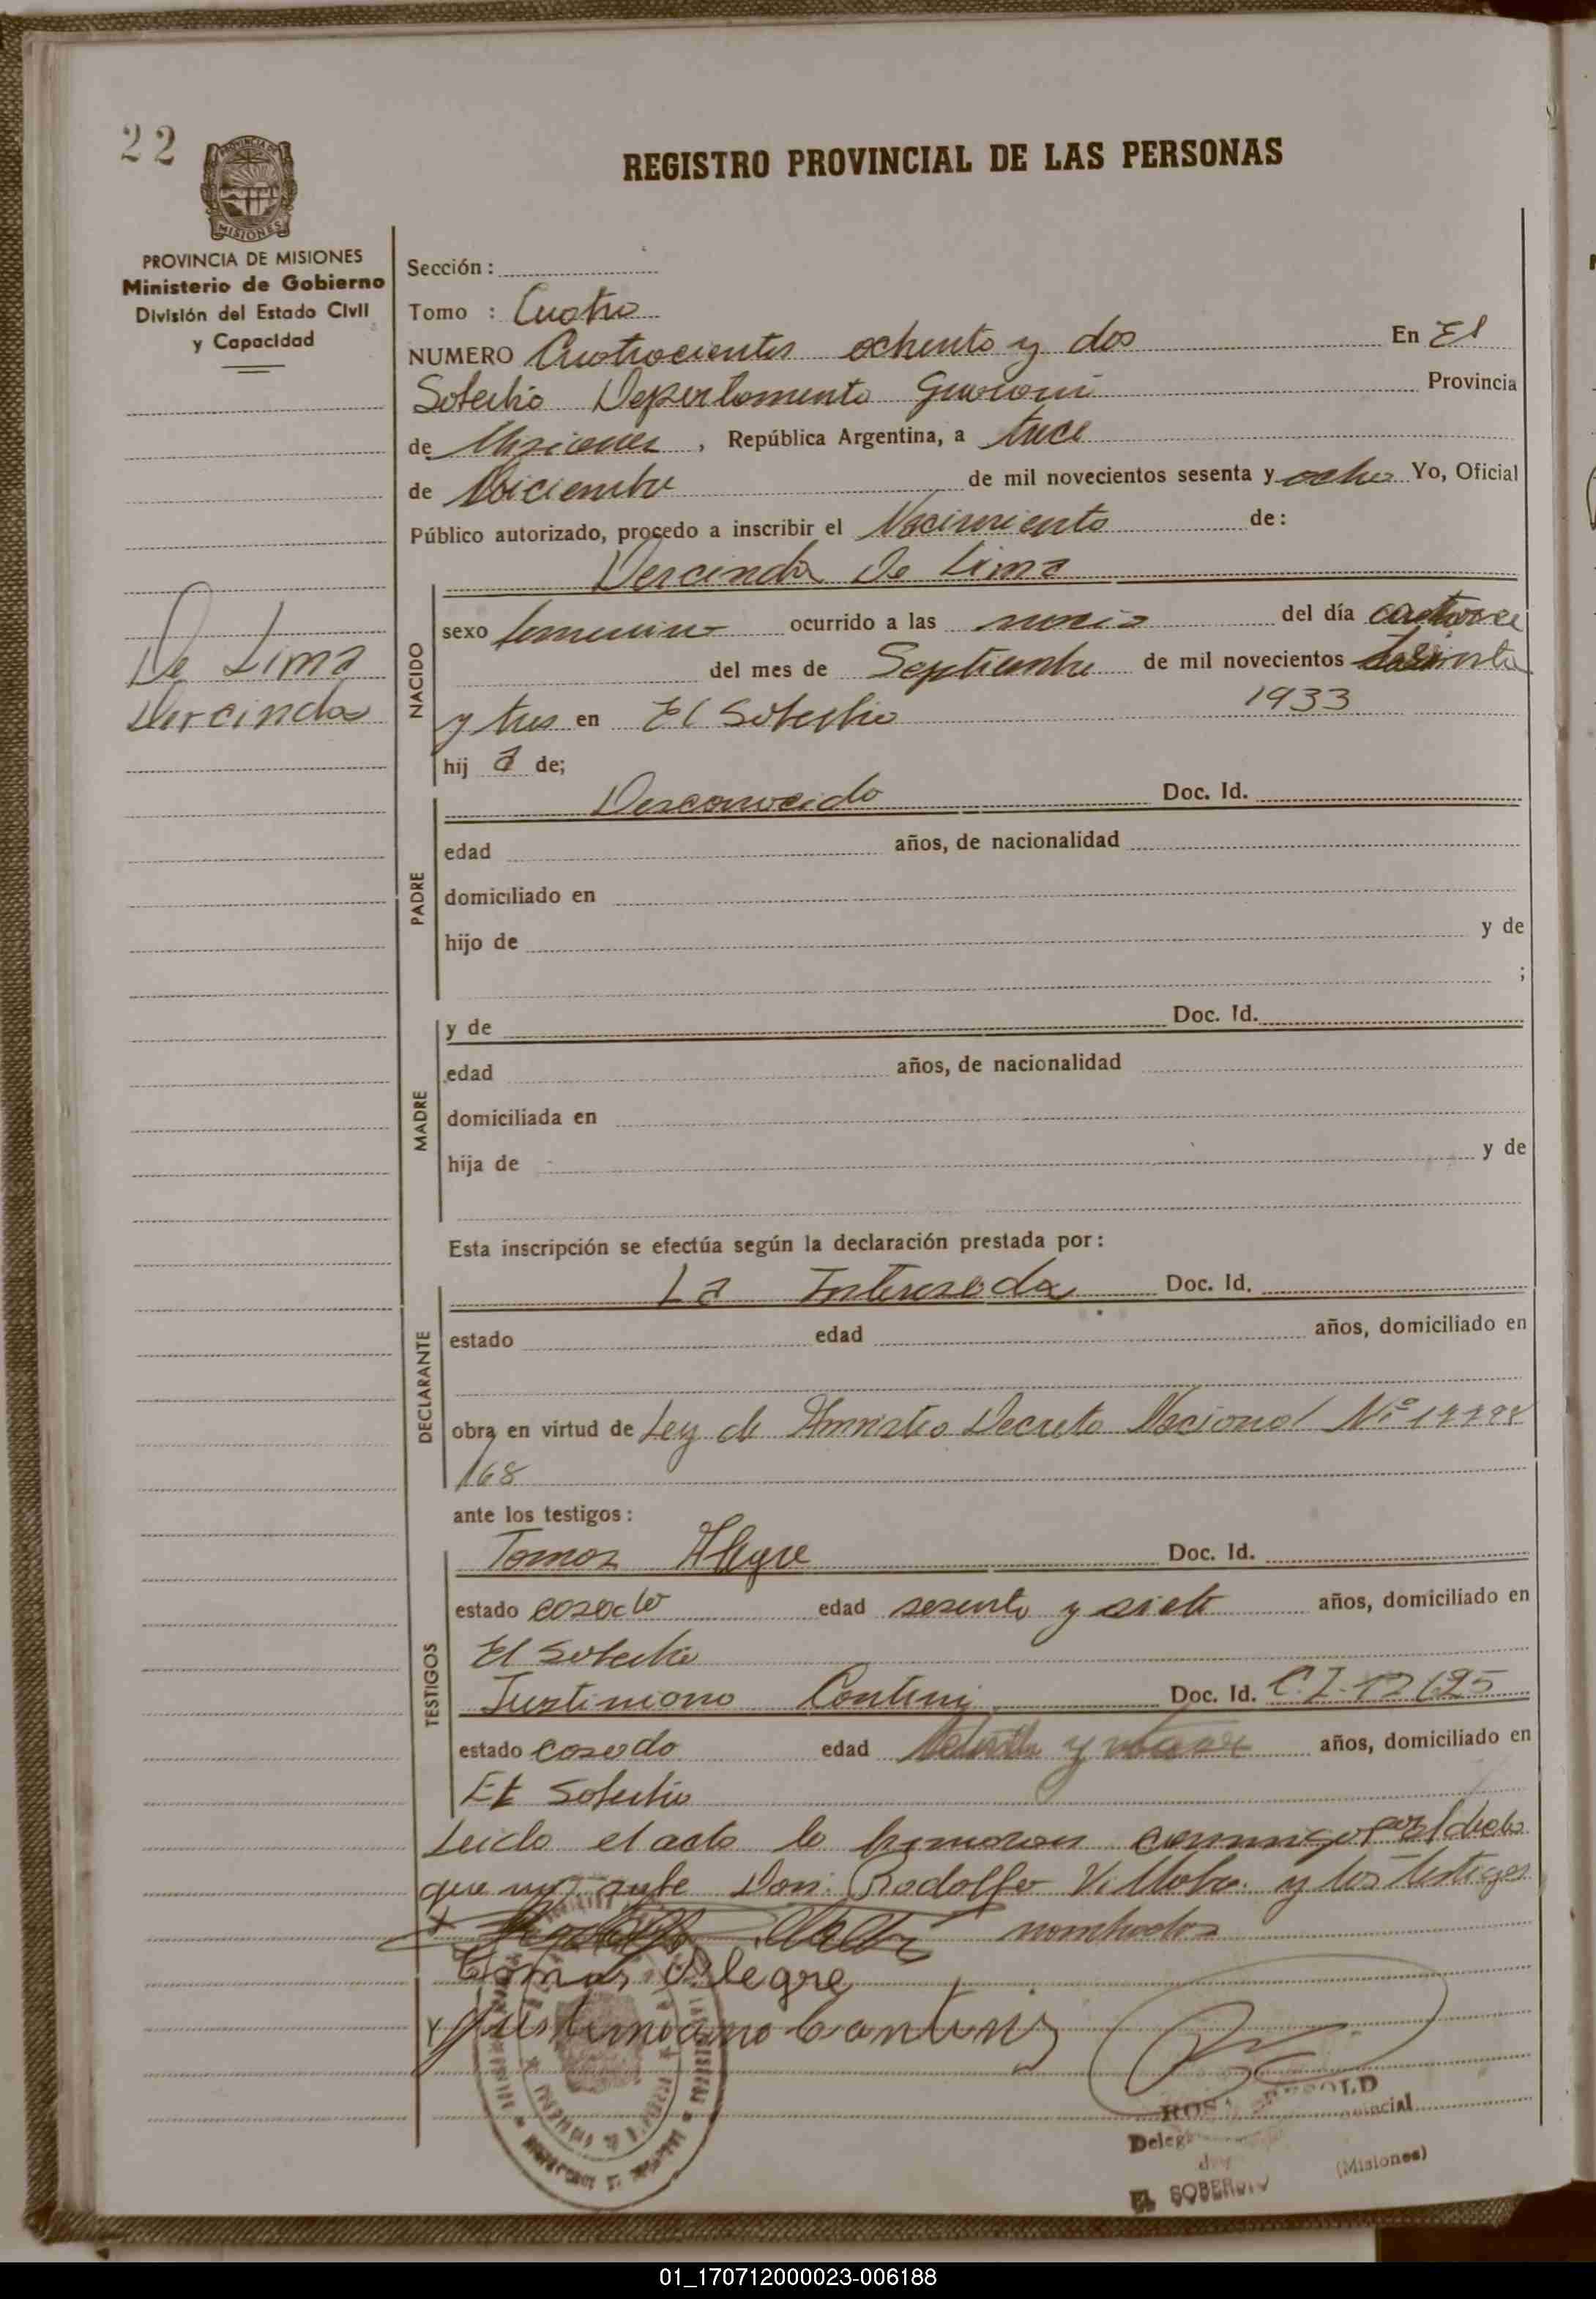 22
REGISTRO PROVINCIAL DE LAS PERSONAS
PROVINCIA DE
MISIONES
PROVINCIA DE MISIONES
Ministerio de Gobierno
División del Estado Civil
y Capacidad
Sección :
Tomo : Cuatro
NUMERO Cuatrocientos ochenta y dos En El
Soberbio Departamento Guarani Provincia
de Misiones , República Argentina, a trece
de Diciembre de mil novecientos sesenta y ocho Yo, Oficial
Público autorizado, procedo a inscribir el Nacimiento de:
Dercinda De Lima
De Lima
Dercinda
NACIDO
sexo femenino ocurrido a las del día catorce
del mes de Septiembre de mil novecientos treinta
y tres en El Soberbio 1933
hij a de;
PADRE
Desconocido Doc. Id.
edad años, de nacionalidad
domiciliado en
hijo de y de
;
MADRE
y de Doc. Id.
edad años, de nacionalidad
domiciliada en
hija de y de
Esta inscripción se efectúa según la declaración prestada por :
DECLARANTE
La Interesada Doc. Id.
estado edad años, domiciliado en
obra en virtud de Ley de Amnistia Decreto Nacional Nº
/68
ante los testigos :
TESTIGOS
Tomas Alegre Doc. Id.
estado casado edad sesenta y siete años, domiciliado en
El Soberbio
Justiniano Contini Doc. Id. C.I.
estado casado edad años, domiciliado en
El Soberbio
Leido el acta la firmaron conmigo
que no sabe Don: Rodolfo Villalba y los testigos
nombrados
Tomas Alegre
Justiniano Contini
Deleg
(Misiones)
EL SOBERBIO
01_170712000023-006188